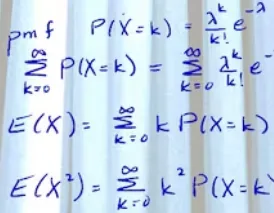 pmf P(X=k) = λ^k/k! e^-λ
∞∑k=0 P(X=k) = ∞∑k=0 λ^k/k! e^-
E(X) = ∞∑k=0 k P(X=k)
E(X²) = ∞∑k=0 k² P(X=k